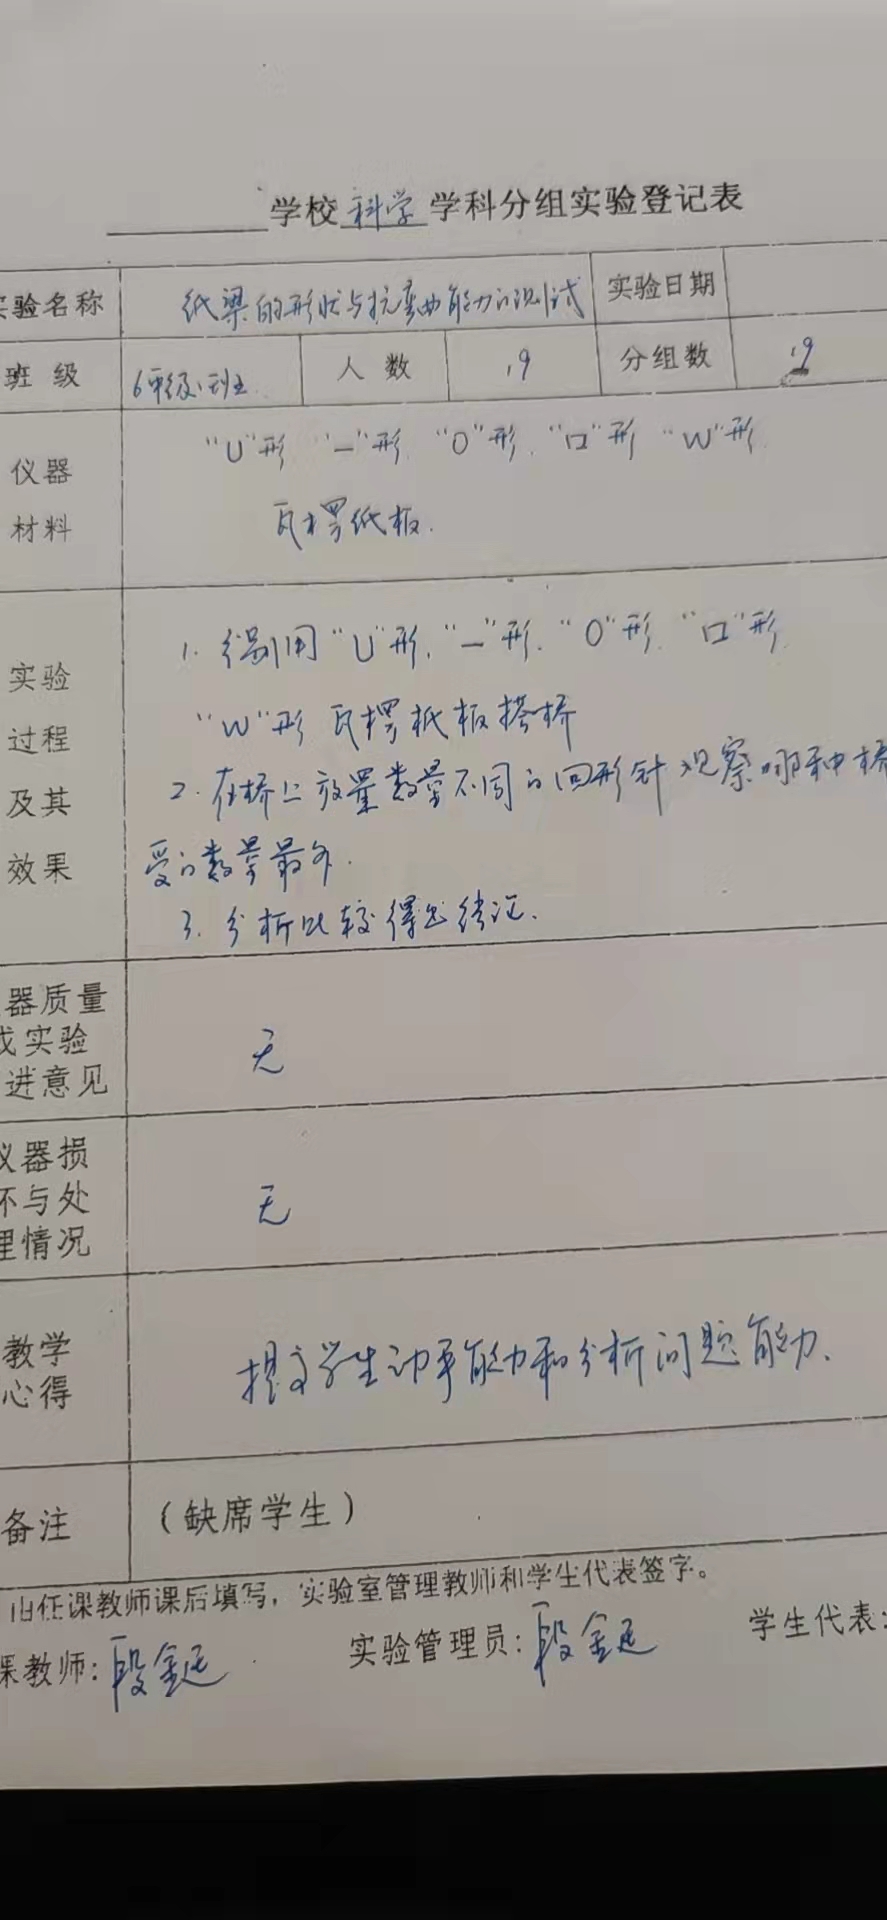 学校 科学 学科分组实验登记表
实验名称 纸梁的形状与抗弯曲能力的测试 实验日期
班 级 6年级1班 人 数 9 分组数 9
仪器 “U”形 “一”形、“O”形、“口”形 “W”形
材料 瓦楞纸板.
实验 1. 分别用“U”形、“一”形、“O”形、“口”形
过程 “W”形 瓦楞纸板搭桥
及其 2. 在桥上放置数量不同的回形针 观察哪种桥
效果 受的数量最多.
3. 分析比较得出结论.
器质量
或实验 无
进意见
仪器损
坏与处 无
理情况
教学 提高学生动手能力和分析问题能力.
心得
备注 (缺席学生)
由任课教师课后填写，实验室管理教师和学生代表签字。
课教师: 段金廷 实验管理员: 段金廷 学生代表: